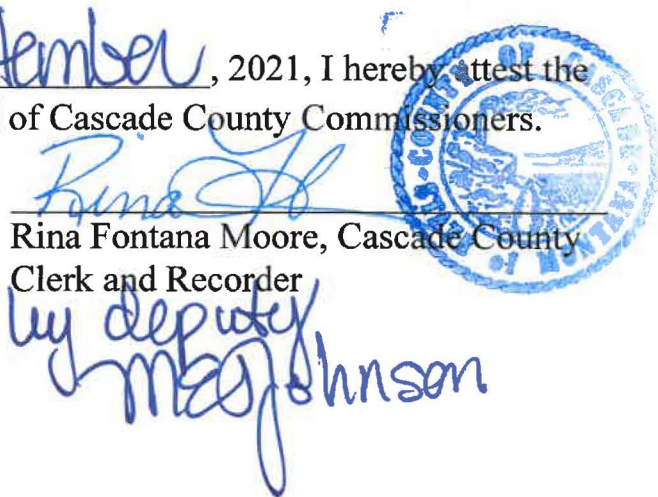 tember, 2021, I hereby attest the
of Cascade County Commissioners.
Rina
Rina Fontana Moore, Cascade County
Clerk and Recorder
by deputy
Johnson
COUNTY OF CASCADE